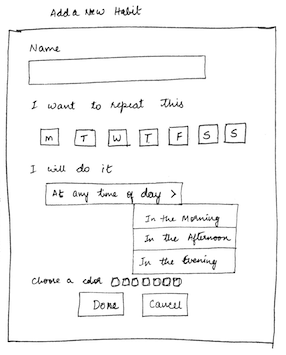 Add a New Habit
Name
I want to repeat this
M T W T F S S
I will do it
At any time of day >
In the Morning
In the Afternoon
In the Evening
Choose a color
Done Cancel